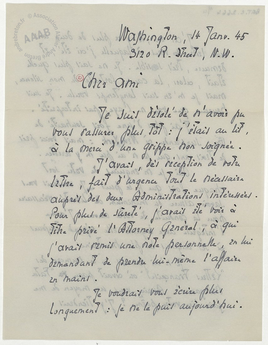 Washington, 14 Janv. 45
3120 R. Street, N.W.
Cher ami
Je suis désolé de n'avoir pu
vous rassurer plus tôt : j'étais au lit
à la merci d'une grippe mal soignée.
J'avais, dès réception de votre
lettre, fait d'urgence tout le nécessaire
auprès des deux Administrations intéressées.
Pour plus de sûreté, j'avais été voir à
titre privé l'Attorney Général, à qui
j'avais remis une note personnelle, en lui
demandant de prendre lui-même l'affaire
en mains.
Je voudrais vous écrire plus
longuement : je ne le puis aujourd'hui.